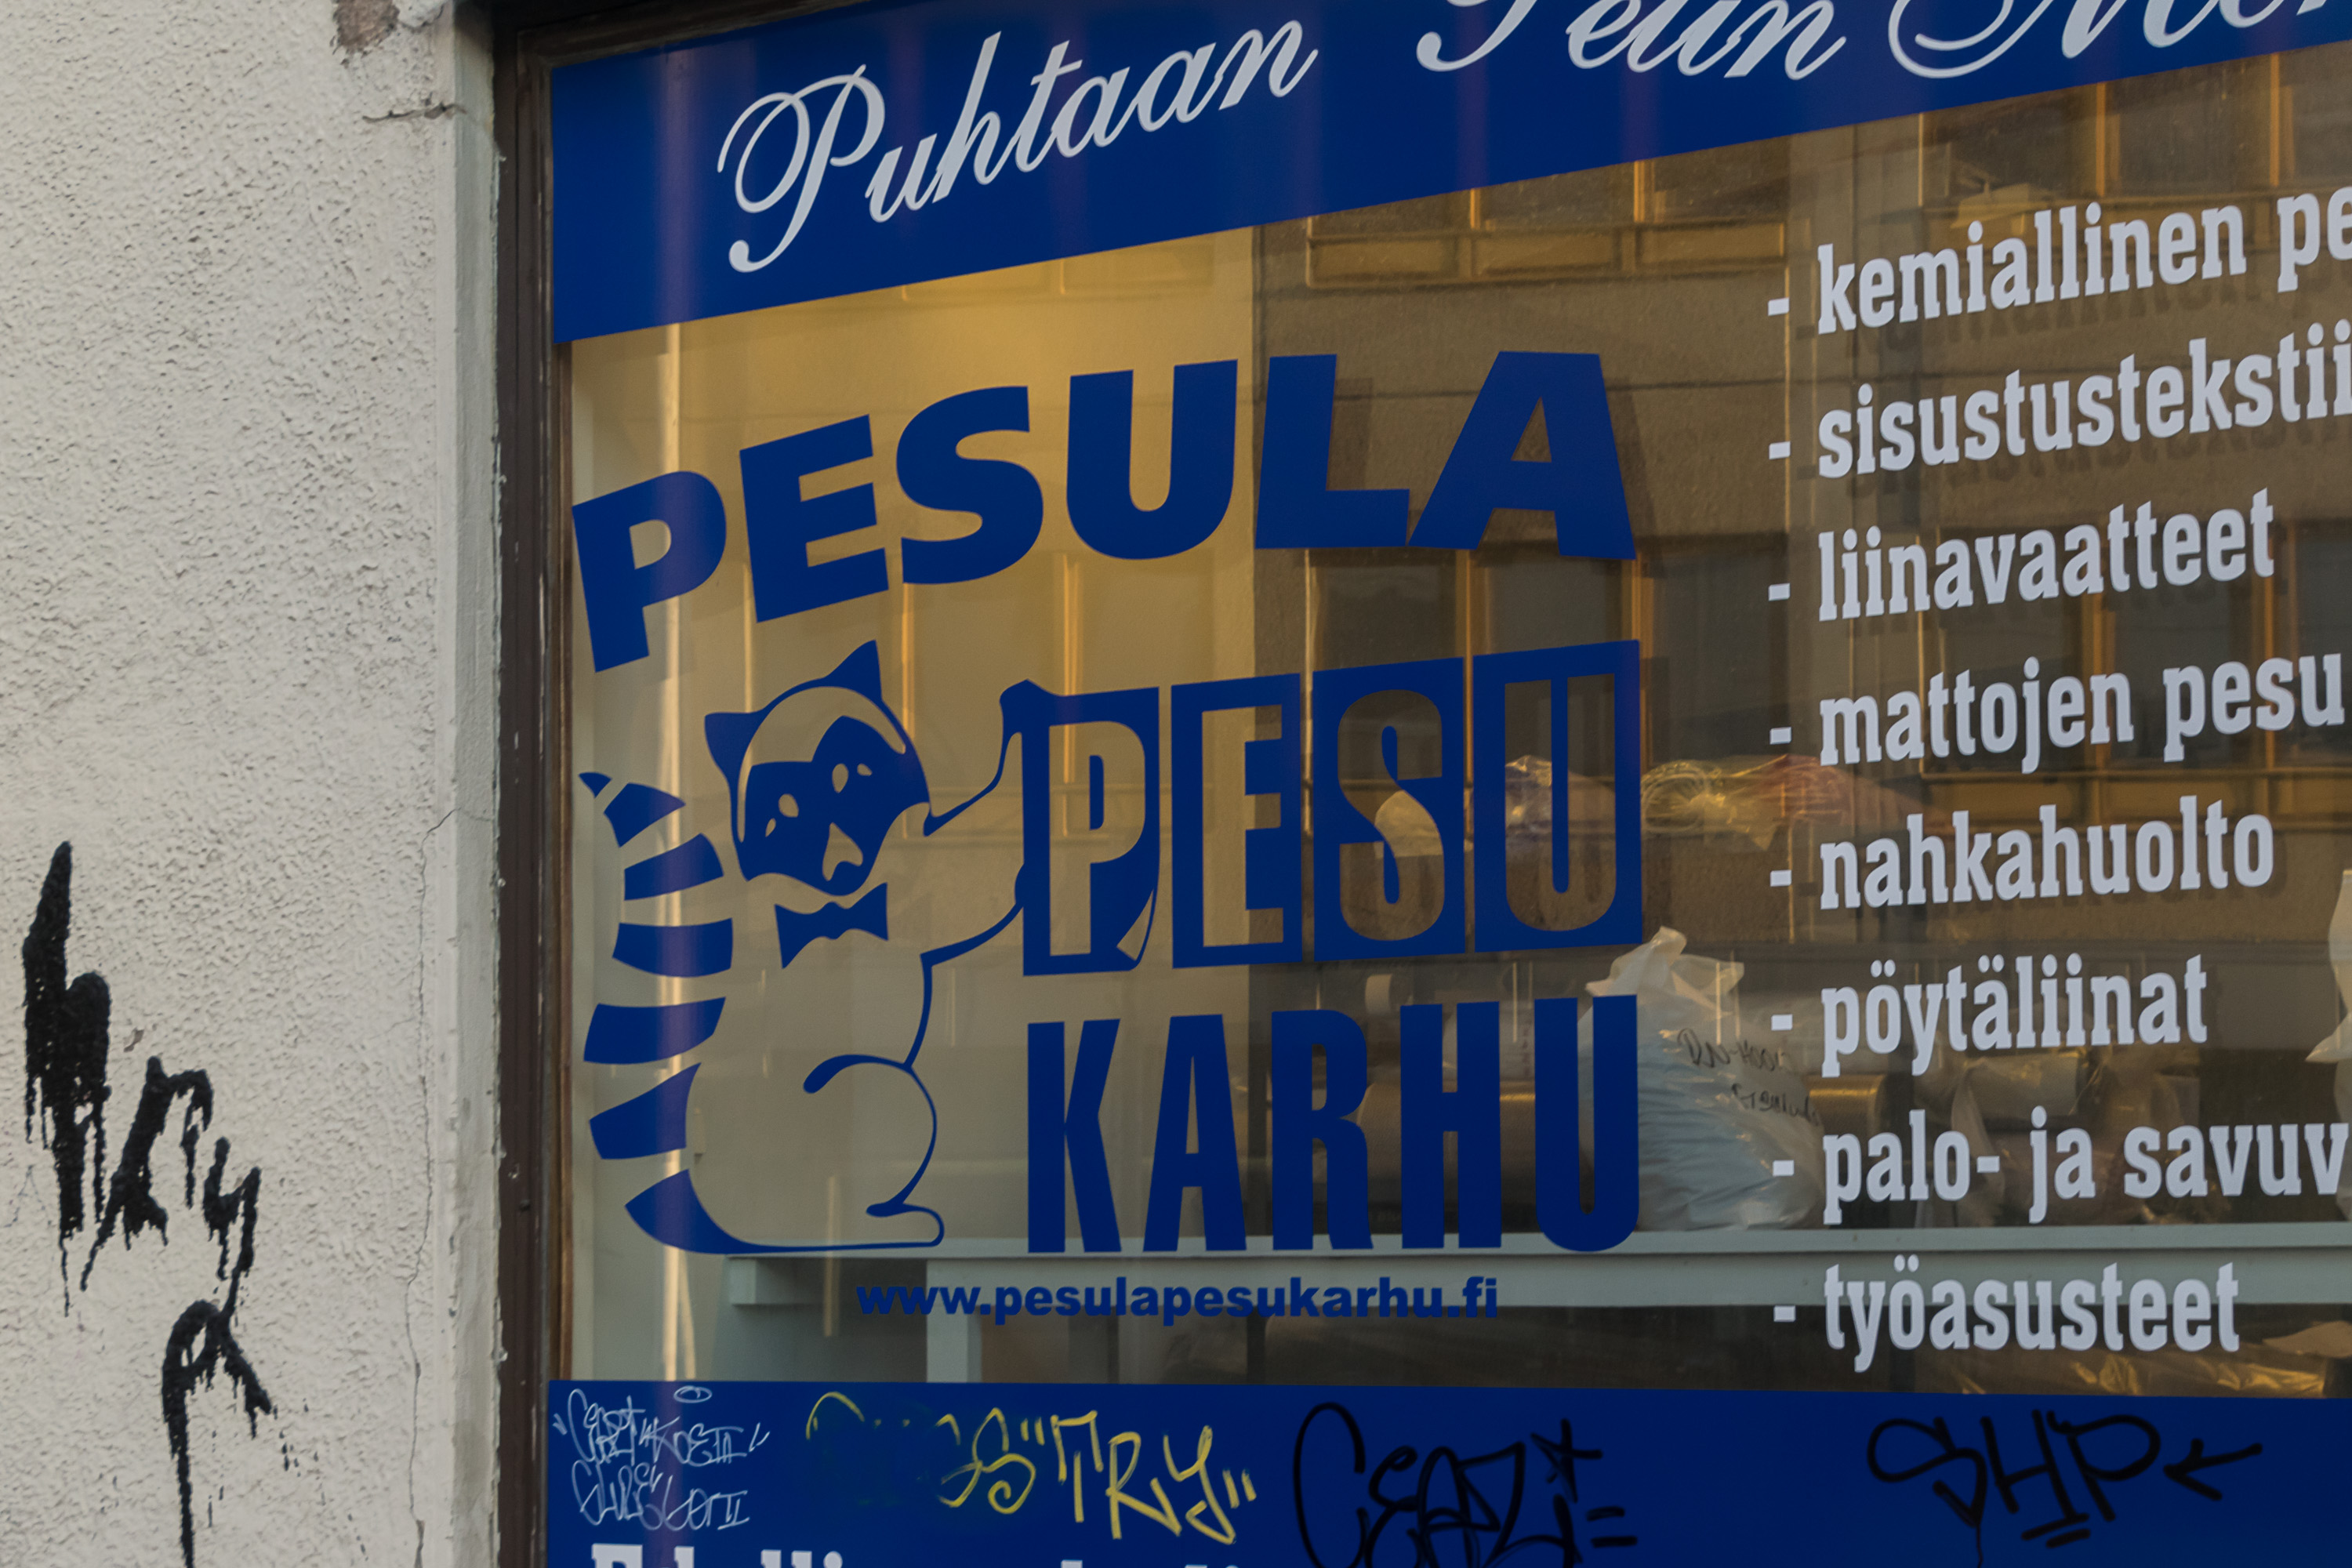 Puhtaan Pelin
PESULA
PESU
KARHU
www.pesulapesukarhu.fi
- kemiallinen
- sisustustekstii
- liinavaatteet
- mattojen pesu
- nahkahuolto
- pöytäliinat
- palo- ja savuv
- työasusteet
"TRY"
SHP